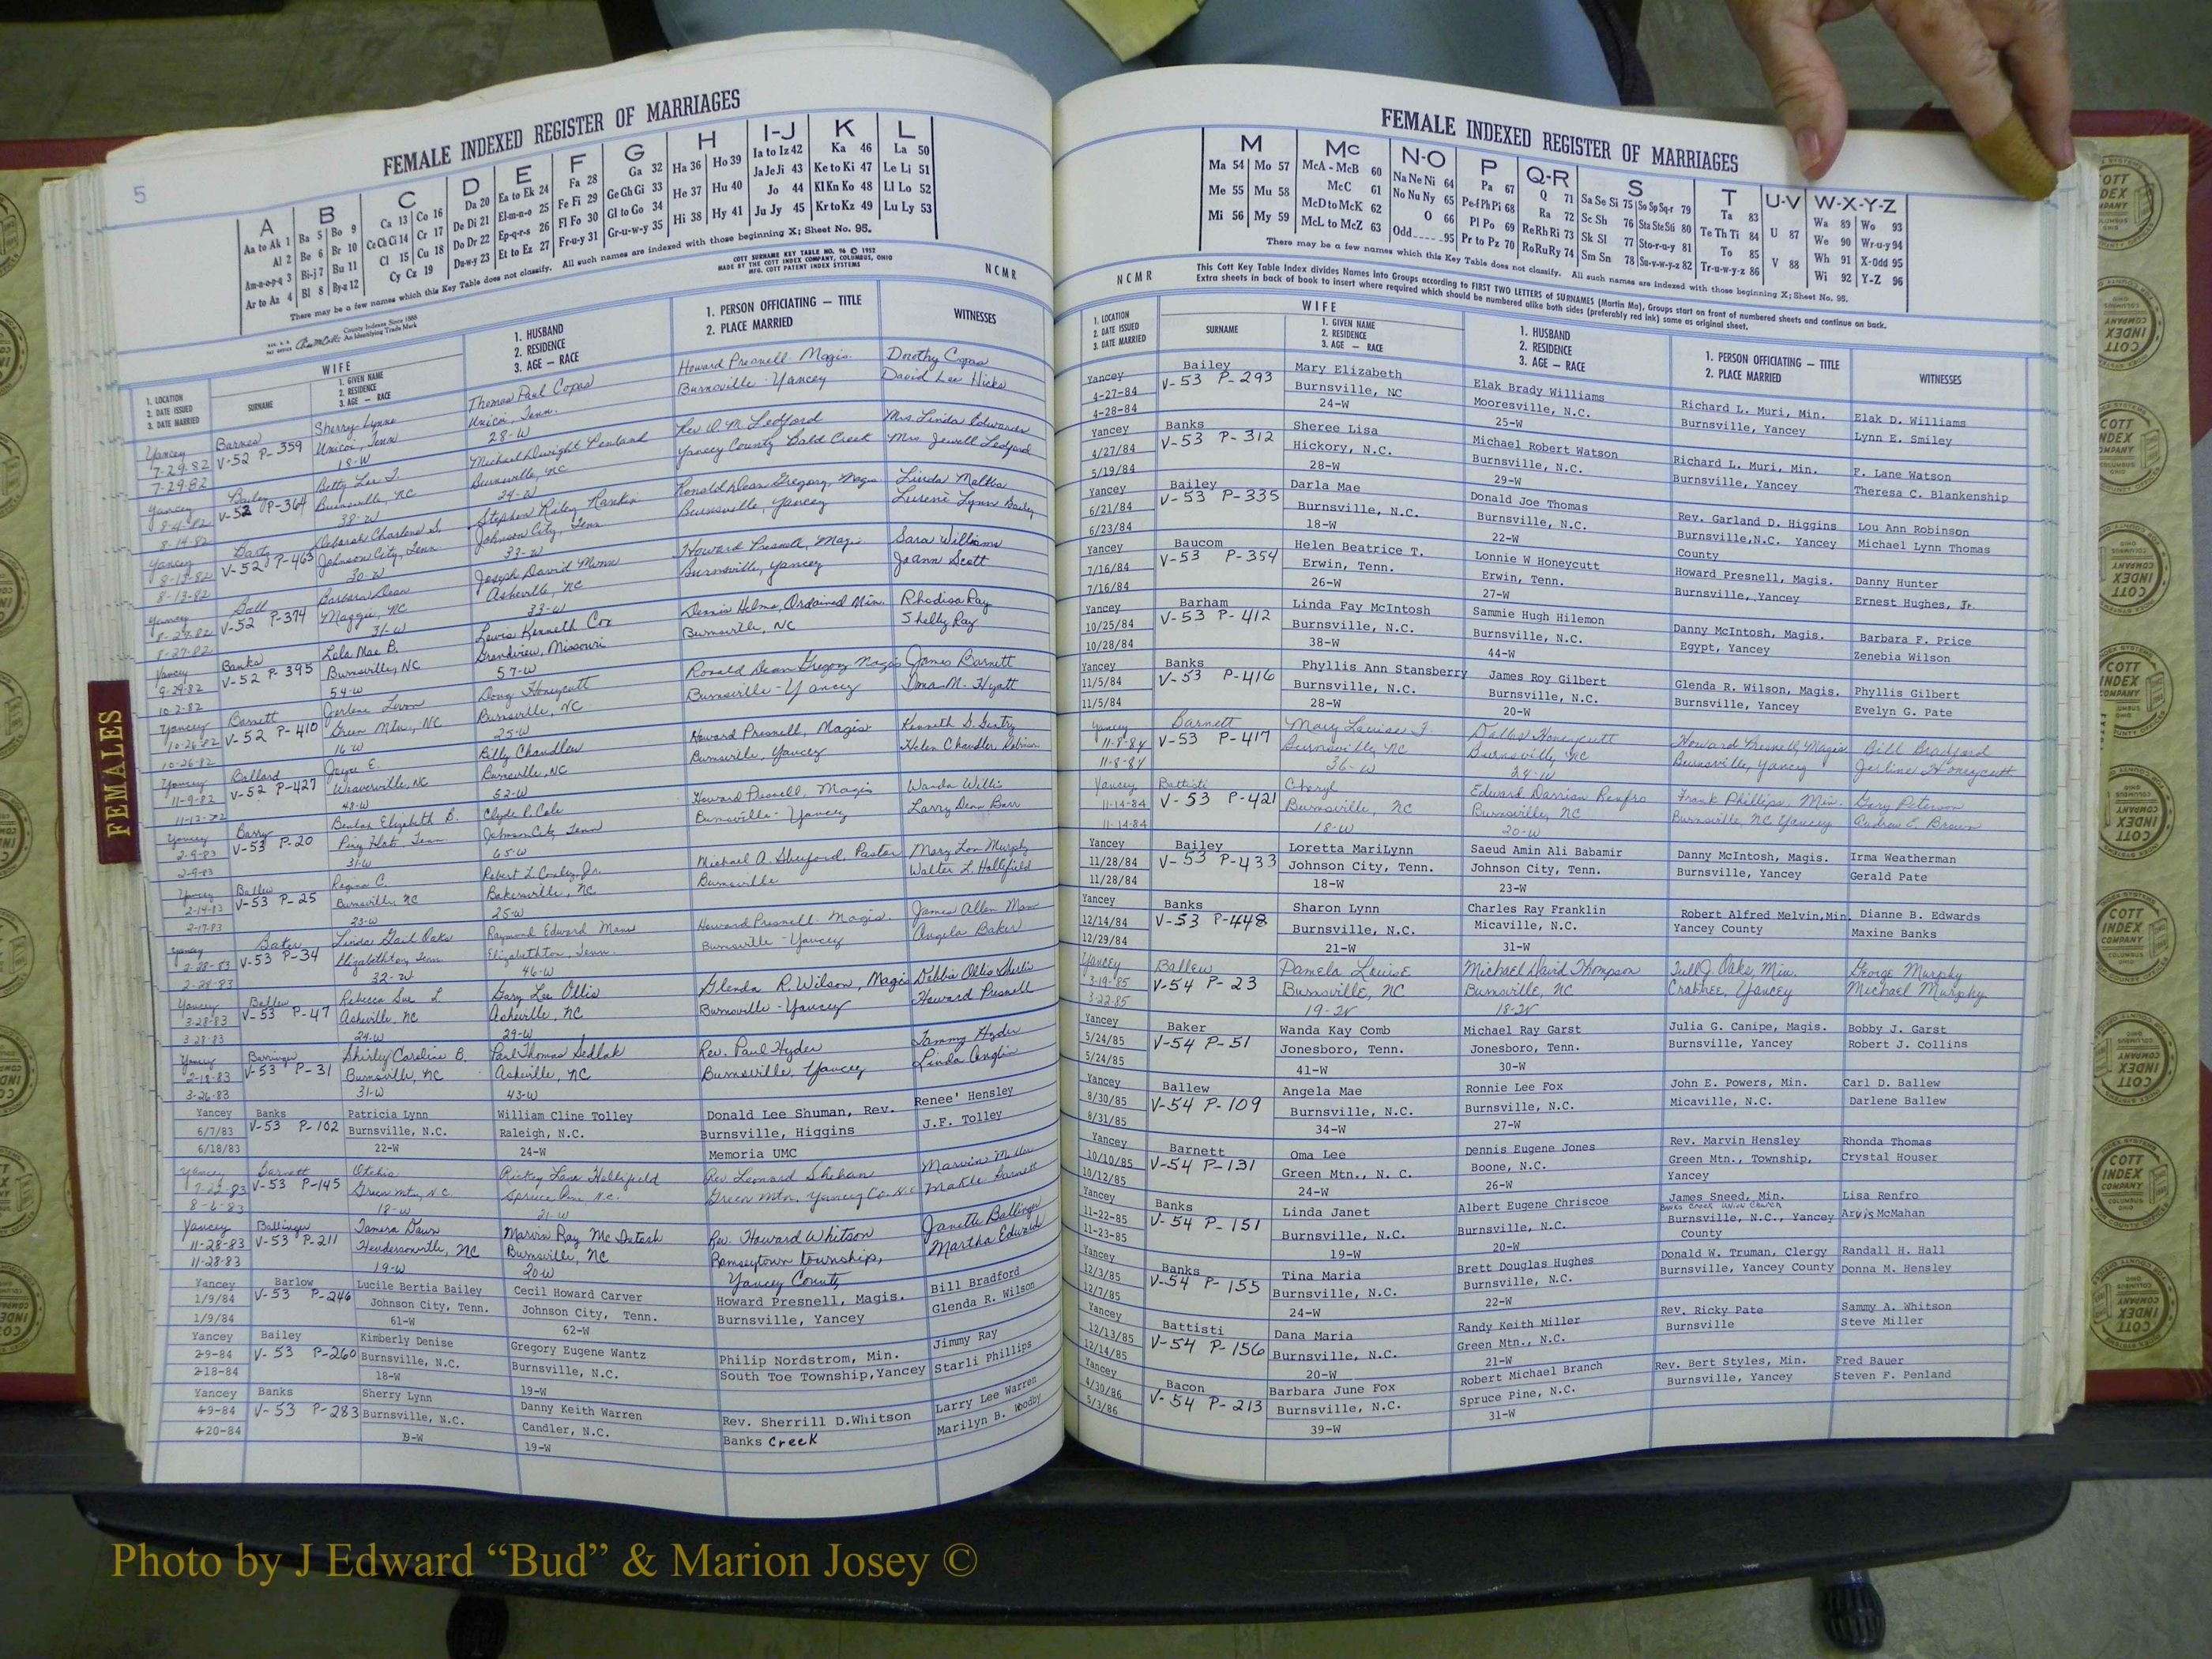 5
FEMALE INDEXED REGISTER OF MARRIAGES
A B C D E F G H I-J K L
Aa to Ak 1 Ba 5 Bo 9 Ca 13 Co 16 Da 20 Ea to Ek 24 Fa 28 Ga 32 Ha 36 Ho 39 Ia to Iz 42 Ka 46 La 50
Al 2 Be 6 Br 10 Ce Ch Ci 14 Cr 17 De Di 21 El-m-n-o 25 Fe Fi 29 Ge Gh Gi 33 He 37 Hu 40 Ja Je Ji 43 Ke to Ki 47 Le Li 51
Am-n-o-p-q 3 Bi-j 7 Bu 11 Cl 15 Cu 18 Do Dr 22 Ep-q-r-s 26 Fl Fo 30 Gl to Go 34 Hi 38 Hy 41 Jo 44 Kl Kn Ko 48 Ll Lo 52
Ar to Az 4 Bl 8 By-z 12 Cy Cz 19 Du-w-y 23 Et to Ez 27 Fr-u-y 31 Gr-u-w-y 35 Ju Jy 45 Kr to Kz 49 Lu Ly 53
There may be a few names which this Key Table does not classify. All such names are indexed with those beginning X; Sheet No. 95.
COTT SURNAME KEY TABLE NO. 96 © 1952
MADE BY THE COTT INDEX COMPANY, COLUMBUS, OHIO
MFG. COTT PATENT INDEX SYSTEMS
NCMR
County Indexes Since 1888
An Identifying Trade Mark
1. LOCATION
2. DATE ISSUED
3. DATE MARRIED
WIFE
SURNAME
1. GIVEN NAME
2. RESIDENCE
3. AGE — RACE
1. HUSBAND
2. RESIDENCE
3. AGE — RACE
1. PERSON OFFICIATING — TITLE
2. PLACE MARRIED
WITNESSES
Yancey Barnes Sherry Lynne Thomas Paul Copas Howard Presnell Magis. Dorothy Copas
7-29-82 V-52 P-359 Unicoi, Tenn Unicoi, Tenn. Burnsville - Yancey David Lee Hicks
7-29-82 18-W 28-W
Yancey Bailey Betty Lee T. Michael Dwight Penland Rev O. M. Ledford Mrs. Linda Edwards
8-4-82 V-52 P-364 Burnsville, NC Burnsville, NC Yancey County Bald Creek Mrs. Jewell Ledford
8-14-82 38-W 24-W
Yancey Deborah Charlene S. Stephen Riley Rankin Ronald Dean Gregory, Magis Linda
8-13-82 V-52 P-463 Johnson City, Tenn Johnson City, Tenn Burnsville, Yancey Lynn Bailey
8-13-82 30-W 33-W
Yancey Ball Barbara Dean Joseph David Howard Presnell, Magis Sara Williams
8-27-82 V-52 P-374 Maggie, NC Asheville, NC Burnsville, Yancey Joann Scott
8-27-82 31-W 33-W
Yancey Banks Lela Mae B. Lewis Kenneth Cox Dennis Helms, Ordained Min. Rhodisa Ray
9-29-82 V-52 P-395 Burnsville, NC Grandview, Missouri Burnsville, NC Shelly Ray
10-2-82 54-W 57-W
Yancey Barnett Jerlene Doug Honeycutt Ronald Dean Gregory Magis James Barnett
10-26-82 V-52 P-410 Green Mtn., NC Burnsville, NC Burnsville - Yancey M. Hyatt
10-26-82 16-W 25-W
Yancey Ballard Joyce E. Billy Chandler Howard Presnell, Magis Kenneth
11-9-82 V-52 P-427 Weaverville, NC Burnsville, NC Burnsville, Yancey Helen Chandler
48-W 52-W
Yancey Barry Elizabeth B. Clyde P. Cole Howard Presnell, Magis Wanda Willis
2-9-83 V-53 P-20 Piney Flats Tenn Johnson City, Tenn Burnsville - Yancey Larry Dean
2-9-83 31-W 65-W
Yancey Ballew Regina C. Robert L. Jr. Michael A. Pastor Mary Lou Murphy
2-14-83 V-53 P-25 Burnsville, NC Bakersville, NC Burnsville Walter L. Hollifield
2-17-83 23-W 25-W
Yancey Linda Gail Oaks Raymond Edward Howard Presnell - Magis. James Allen
2-28-83 V-53 P-34 Elizabethton, Tenn Elizabethton, Tenn. Burnsville - Yancey Angela Baker
2-28-83 32-W 46-W
Yancey Ballew Rebecca Sue L Gary Lee Ollis Glenda R. Wilson, Magis Debbie Ollis
3-28-83 V-53 P-47 Asheville, NC Asheville, NC Burnsville - Yancey Howard Presnell
3-28-83 24-W 29-W
Yancey Barringer Shirley Caroline B. Paul Thomas Sedlak Rev. Paul Hyder Tammy Hyder
2-18-83 V-53 P-31 Burnsville, NC Asheville, NC Burnsville, Yancey Linda Anglin
3-26-83 31-W 43-W
Yancey Banks Patricia Lynn William Cline Tolley Donald Lee Shuman, Rev. Renee' Hensley
6/7/83 V-53 P-102 Burnsville, N.C. Raleigh, N.C. Burnsville, Higgins J.F. Tolley
6/18/83 22-W 24-W Memoria UMC
Yancey Barnett Rickey Lane Hollifield Rev Leonard Shehan Marvin
7-22-83 V-53 P-145 Green Mtn, N.C. Spruce Pine N.C. Green Mtn, Yancey Co. N.C Barnett
8-6-83 18-W 21-W
Yancey Ballinger Tamera Dawn Marvin Ray McIntosh Rev. Howard Whitson Janette Ballinger
11-28-83 V-53 P-211 Hendersonville, NC Burnsville, NC Ramseytown township, Martha Edwards
11-28-83 19-W 20-W Yancey County
Yancey Barlow Lucile Bertia Bailey Cecil Howard Carver Howard Presnell, Magis. Bill Bradford
1/9/84 V-53 P-246 Johnson City, Tenn. Johnson City, Tenn. Burnsville, Yancey Glenda R. Wilson
1/9/84 61-W 62-W
Yancey Bailey Kimberly Denise Gregory Eugene Wantz Philip Nordstrom, Min. Jimmy Ray
2-9-84 V-53 P-260 Burnsville, N.C. Burnsville, N.C. South Toe Township,Yancey Starli Phillips
2-18-84 18-W 19-W
Yancey Banks Sherry Lynn Danny Keith Warren Rev. Sherrill D.Whitson Larry Lee Warren
4-9-84 V-53 P-283 Burnsville, N.C. Candler, N.C. Banks Creek Marilyn B. Woodby
4-20-84 19-W
FEMALE INDEXED REGISTER OF MARRIAGES
M Mc N-O P Q-R S T U-V W-X-Y-Z
Ma 54 Mo 57 McA - McB 60 Na Ne Ni 64 Pa 67 Q 71 Sa Se Si 75 So Sp Sq-r 79 Ta 83 Wa 89 Wo 93
Me 55 Mu 58 McC 61 No Nu Ny 65 Pe-f Ph Pi 68 Ra 72 Sc Sh 76 Sta Ste Sti 80 Te Th Ti 84 U 87 We 90 Wr-u-y 94
Mi 56 My 59 McD to McK 62 O 66 Pl Po 69 Re Rh Ri 73 Sk Sl 77 Sto-r-u-y 81 To 85 Wh 91 X-Odd 95
McL to McZ 63 Odd 95 Pr to Pz 70 Ro Ru Ry 74 Sm Sn 78 Su-v-w-y-z 82 Tr-u-w-y-z 86 V 88 Wi 92 Y-Z 96
There may be a few names which this Key Table does not classify. All such names are indexed with those beginning X; Sheet No. 95.
NCMR
This Cott Key Table Index divides Names into Groups according to FIRST TWO LETTERS of SURNAMES (Martin Ma), Groups start on front of numbered sheets and continue on back.
Extra sheets in back of book to insert where required which should be numbered alike both sides (preferably red ink) same as original sheet.
1. LOCATION
2. DATE ISSUED
3. DATE MARRIED
WIFE
SURNAME
1. GIVEN NAME
2. RESIDENCE
3. AGE — RACE
1. HUSBAND
2. RESIDENCE
3. AGE — RACE
1. PERSON OFFICIATING — TITLE
2. PLACE MARRIED
WITNESSES
Yancey Bailey Mary Elizabeth Elak Brady Williams Richard L. Muri, Min. Elak D. Williams
4-27-84 V-53 P-293 Burnsville, NC Mooresville, N.C. Burnsville, Yancey Lynn E. Smiley
4-28-84 24-W 25-W
Yancey Banks Sheree Lisa Michael Robert Watson Richard L. Muri, Min. F. Lane Watson
4/27/84 V-53 P-312 Hickory, N.C. Burnsville, N.C. Burnsville, Yancey Theresa C. Blankenship
5/19/84 28-W 29-W
Yancey Bailey Darla Mae Donald Joe Thomas Rev. Garland D. Higgins Lou Ann Robinson
6/21/84 V-53 P-335 Burnsville, N.C. Burnsville, N.C. Burnsville,N.C. Yancey Michael Lynn Thomas
6/23/84 18-W 22-W County
Yancey Baucom Helen Beatrice T. Lonnie W Honeycutt Howard Presnell, Magis. Danny Hunter
7/16/84 V-53 P-354 Erwin, Tenn. Erwin, Tenn. Burnsville, Yancey Ernest Hughes, Jr.
7/16/84 26-W 27-W
Yancey Barham Linda Fay McIntosh Sammie Hugh Hilemon Danny McIntosh, Magis. Barbara F. Price
10/25/84 V-53 P-412 Burnsville, N.C. Burnsville, N.C. Egypt, Yancey Zenebia Wilson
10/28/84 38-W 44-W
Yancey Banks Phyllis Ann Stansberry James Roy Gilbert Glenda R. Wilson, Magis. Phyllis Gilbert
11/5/84 V-53 P-416 Burnsville, N.C. Burnsville, N.C. Burnsville, Yancey Evelyn G. Pate
11/5/84 28-W 20-W
Yancey Barnett Mary Louise F. Dallas Honeycutt Howard Presnell, Magis Bill Bradford
11-8-84 V-53 P-417 Burnsville, NC Burnsville, NC Burnsville, Yancey Jerline Honeycutt
11-8-84 36-W
Yancey Battisti Cheryl Edward Darrian Renfro Frank Phillips, Min. Gary Peterson
11-14-84 V-53 P-421 Burnsville, NC Burnsville, NC Burnsville, NC Yancey Andrew E. Brown
11-14-84 18-W 20-W
Yancey Bailey Loretta MariLynn Saeud Amin Ali Babamir Danny McIntosh, Magis. Irma Weatherman
11/28/84 V-53 P-433 Johnson City, Tenn. Johnson City, Tenn. Burnsville, Yancey Gerald Pate
11/28/84 18-W 23-W
Yancey Banks Sharon Lynn Charles Ray Franklin Robert Alfred Melvin,Min. Dianne B. Edwards
12/14/84 V-53 P-448 Burnsville, N.C. Micaville, N.C. Yancey County Maxine Banks
12/29/84 21-W 31-W
Yancey Ballew Pamela Louise Michael David Thompson Tull J. Oaks, Min. George Murphy
3-19-85 V-54 P-23 Burnsville, NC Burnsville, NC Crabtree, Yancey Michael Murphy
3-22-85 19-W 18-W
Yancey Baker Wanda Kay Comb Michael Ray Garst Julia G. Canipe, Magis. Bobby J. Garst
5/24/85 V-54 P-51 Jonesboro, Tenn. Jonesboro, Tenn. Burnsville, Yancey Robert J. Collins
5/24/85 41-W 30-W
Yancey Ballew Angela Mae Ronnie Lee Fox John E. Powers, Min. Carl D. Ballew
8/30/85 V-54 P-109 Burnsville, N.C. Burnsville, N.C. Micaville, N.C. Darlene Ballew
8/31/85 34-W 27-W
Yancey Barnett Oma Lee Dennis Eugene Jones Rev. Marvin Hensley Rhonda Thomas
10/10/85 V-54 P-131 Green Mtn., N. C. Boone, N.C. Green Mtn., Township, Crystal Houser
10/12/85 24-W 26-W Yancey
Yancey Banks Linda Janet Albert Eugene Chriscoe James Sneed, Min. Lisa Renfro
Banks Creek Union Church
11-22-85 V-54 P-151 Burnsville, N.C. Burnsville, N.C. Burnsville, N.C., Yancey Arvis McMahan
11-23-85 19-W 20-W County
Yancey Banks Tina Maria Brett Douglas Hughes Donald W. Truman, Clergy Randall H. Hall
12/3/85 V-54 P-155 Burnsville, N.C. Burnsville, N.C. Burnsville, Yancey County Donna M. Hensley
12/7/85 24-W 22-W
Yancey Battisti Dana Maria Randy Keith Miller Rev. Ricky Pate Sammy A. Whitson
12/13/85 V-54 P-156 Burnsville, N.C. Green Mtn., N.C. Burnsville Steve Miller
12/14/85 20-W 21-W
Yancey Bacon Barbara June Fox Robert Michael Branch Rev. Bert Styles, Min. Fred Bauer
4/30/86 V-54 P-213 Burnsville, N.C. Spruce Pine, N.C. Burnsville, Yancey Steven F. Penland
5/3/86 39-W 31-W
FEMALES
COTT
INDEX
COMPANY
COLUMBUS
OHIO
Photo by J Edward “Bud” & Marion Josey ©